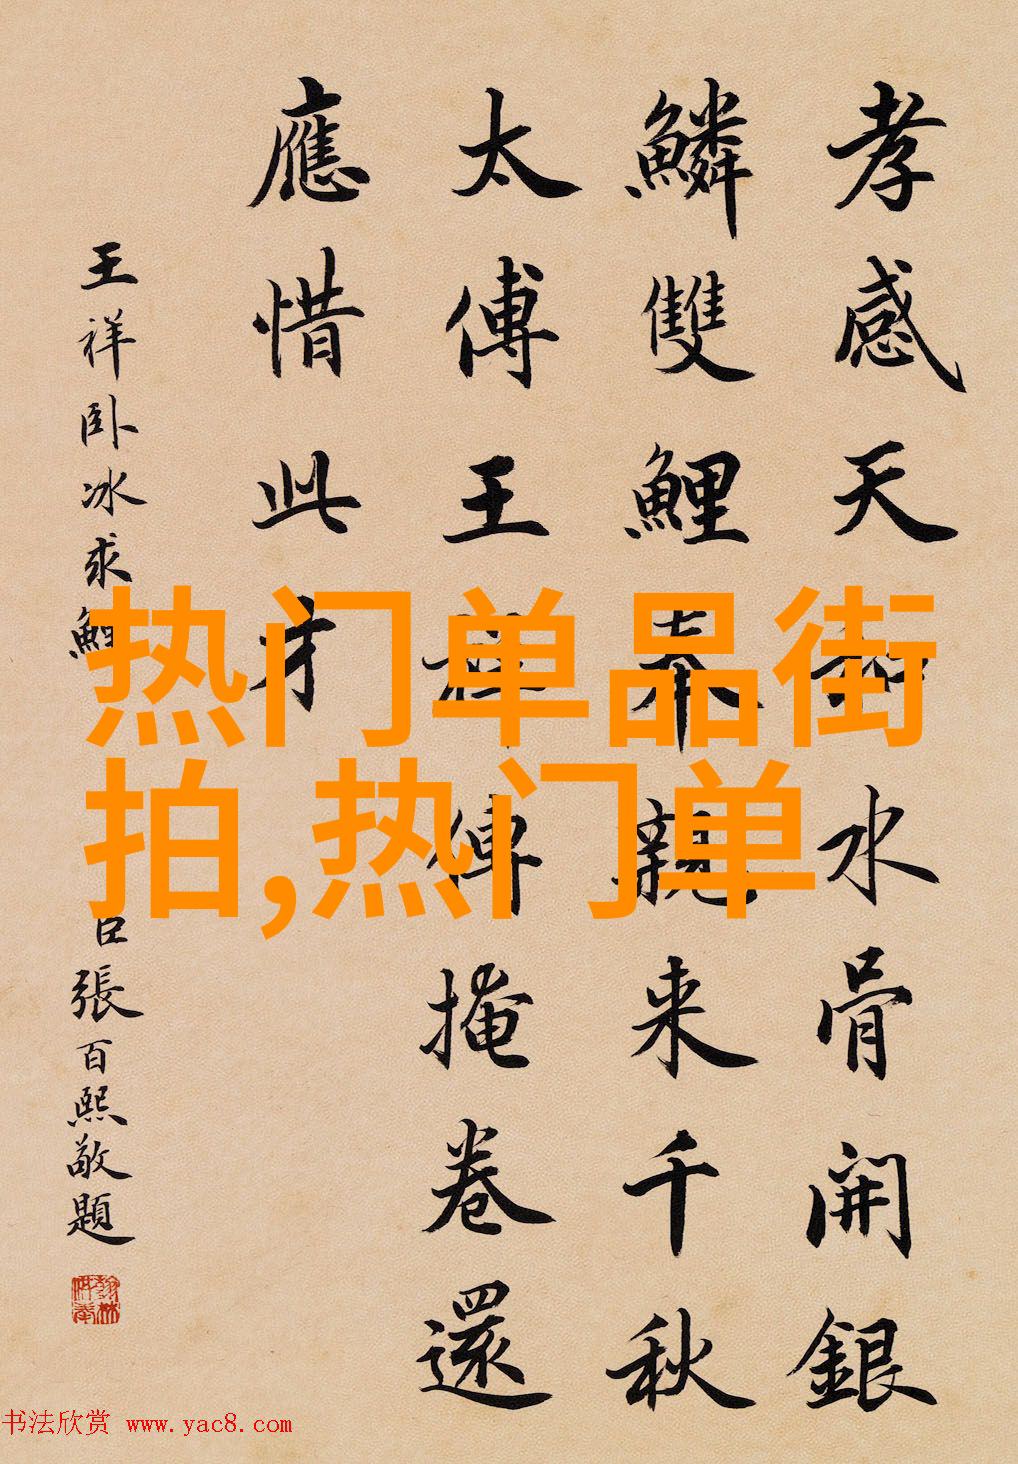 孝感天水骨開銀
鱗雙鯉奉親来千秋
太傅王祥傳掩卷還
應惜此才
王祥卧冰求鯉
臣張百熙敬題
热门单品街
拍,热门单
书法欣赏 www.yac8.com